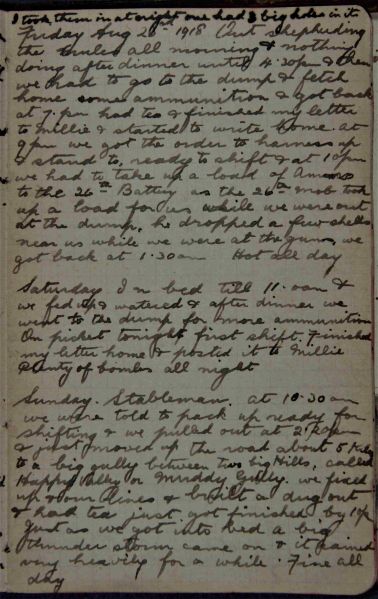 I took them in at night one had 3 big holes in it.
Friday Aug 1918 Out shepherding
the mules all morning & nothing
doing after dinner until 4.30pm & then
we had to go to the dump & fetch
home some ammunition & got back
at 7.pm had tea & finished my letter
to Millie & started to write home. at
9pm we got the order to harness up
& stand to, ready to shift & at 10pm
we had to take up a load of Ammo
to the 26th Battery as the 26th mob took
up a load for us while we were out
at the dump, he dropped a few shells
near us while we were at the guns, we
got back at 1.30am Hot all day
Saturday In bed till 11.00am &
we fed up & watered & after dinner we
went to the dump for more ammunition
On picket tonight first shift. Finished
my letter home & posted it to Millie
Plenty of bombs all night
Sunday. Stableman. at 10.30am
we were told to pack up ready for
shifting & we pulled out at
& just moved up the road about 5
to a big gully between two big Hills, called
Happy Valley or Muddy Gully. we fixed
up our lines & built a dug out
& had tea just got finished by 10p
Just as we got into bed a big
thunder storm came on & it rained
very heavily for a while. Fine all
day